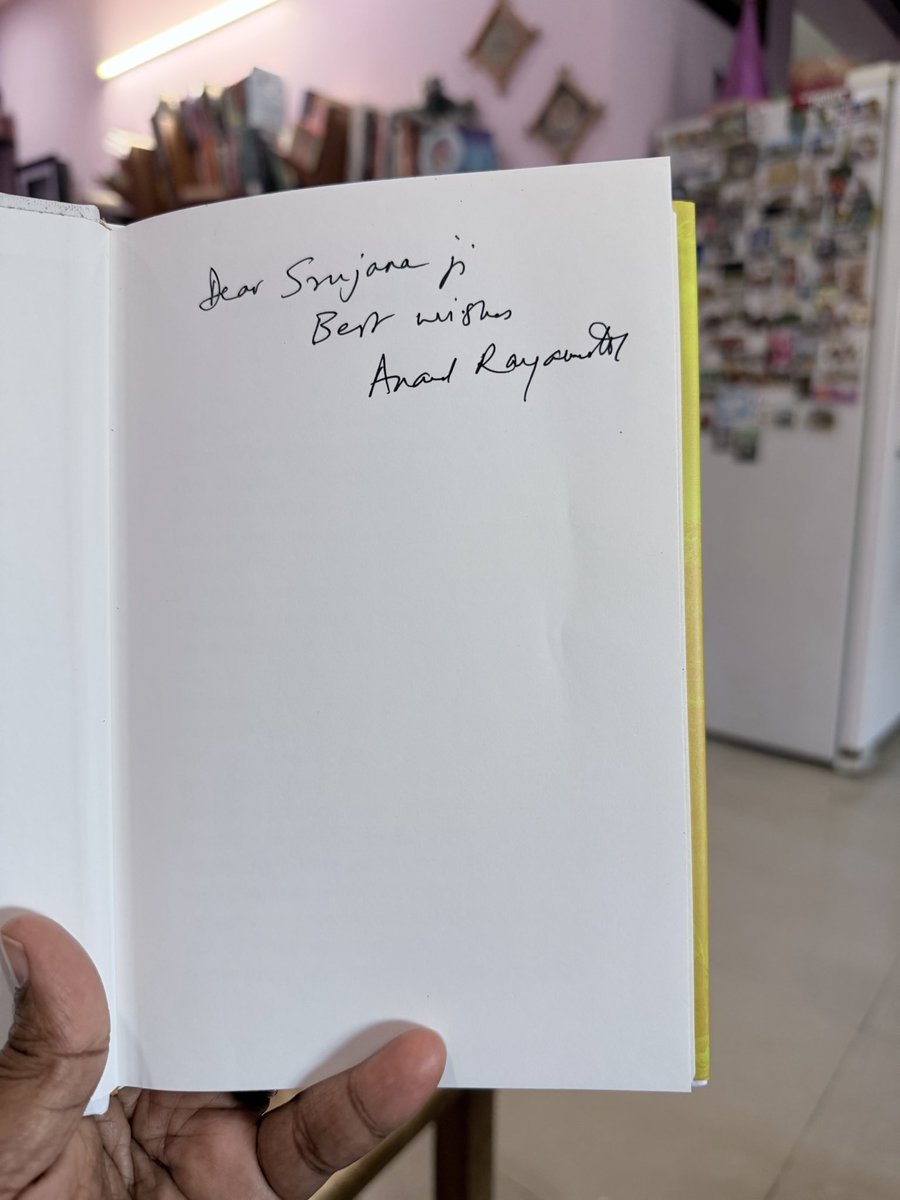 Dear Srujana ji
Best wishes
Anand